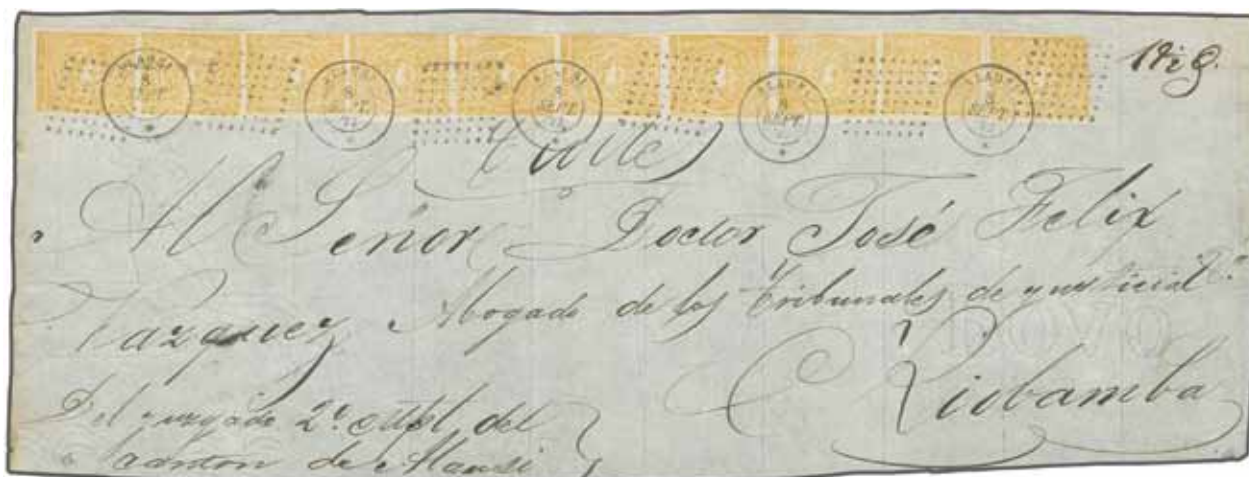 ALAUSI 8 SEPT.
ALAUSI 8 SEPT.
ALAUSI 8 SEPT.
ALAUSI 8 SEPT.
ALAUSI 8 SEPT.
Al Señor Doctor José Felix
Vazquez Abogado de los Tribunales de justicia
Riobamba
Del juzgado 2º del
canton de Alausi